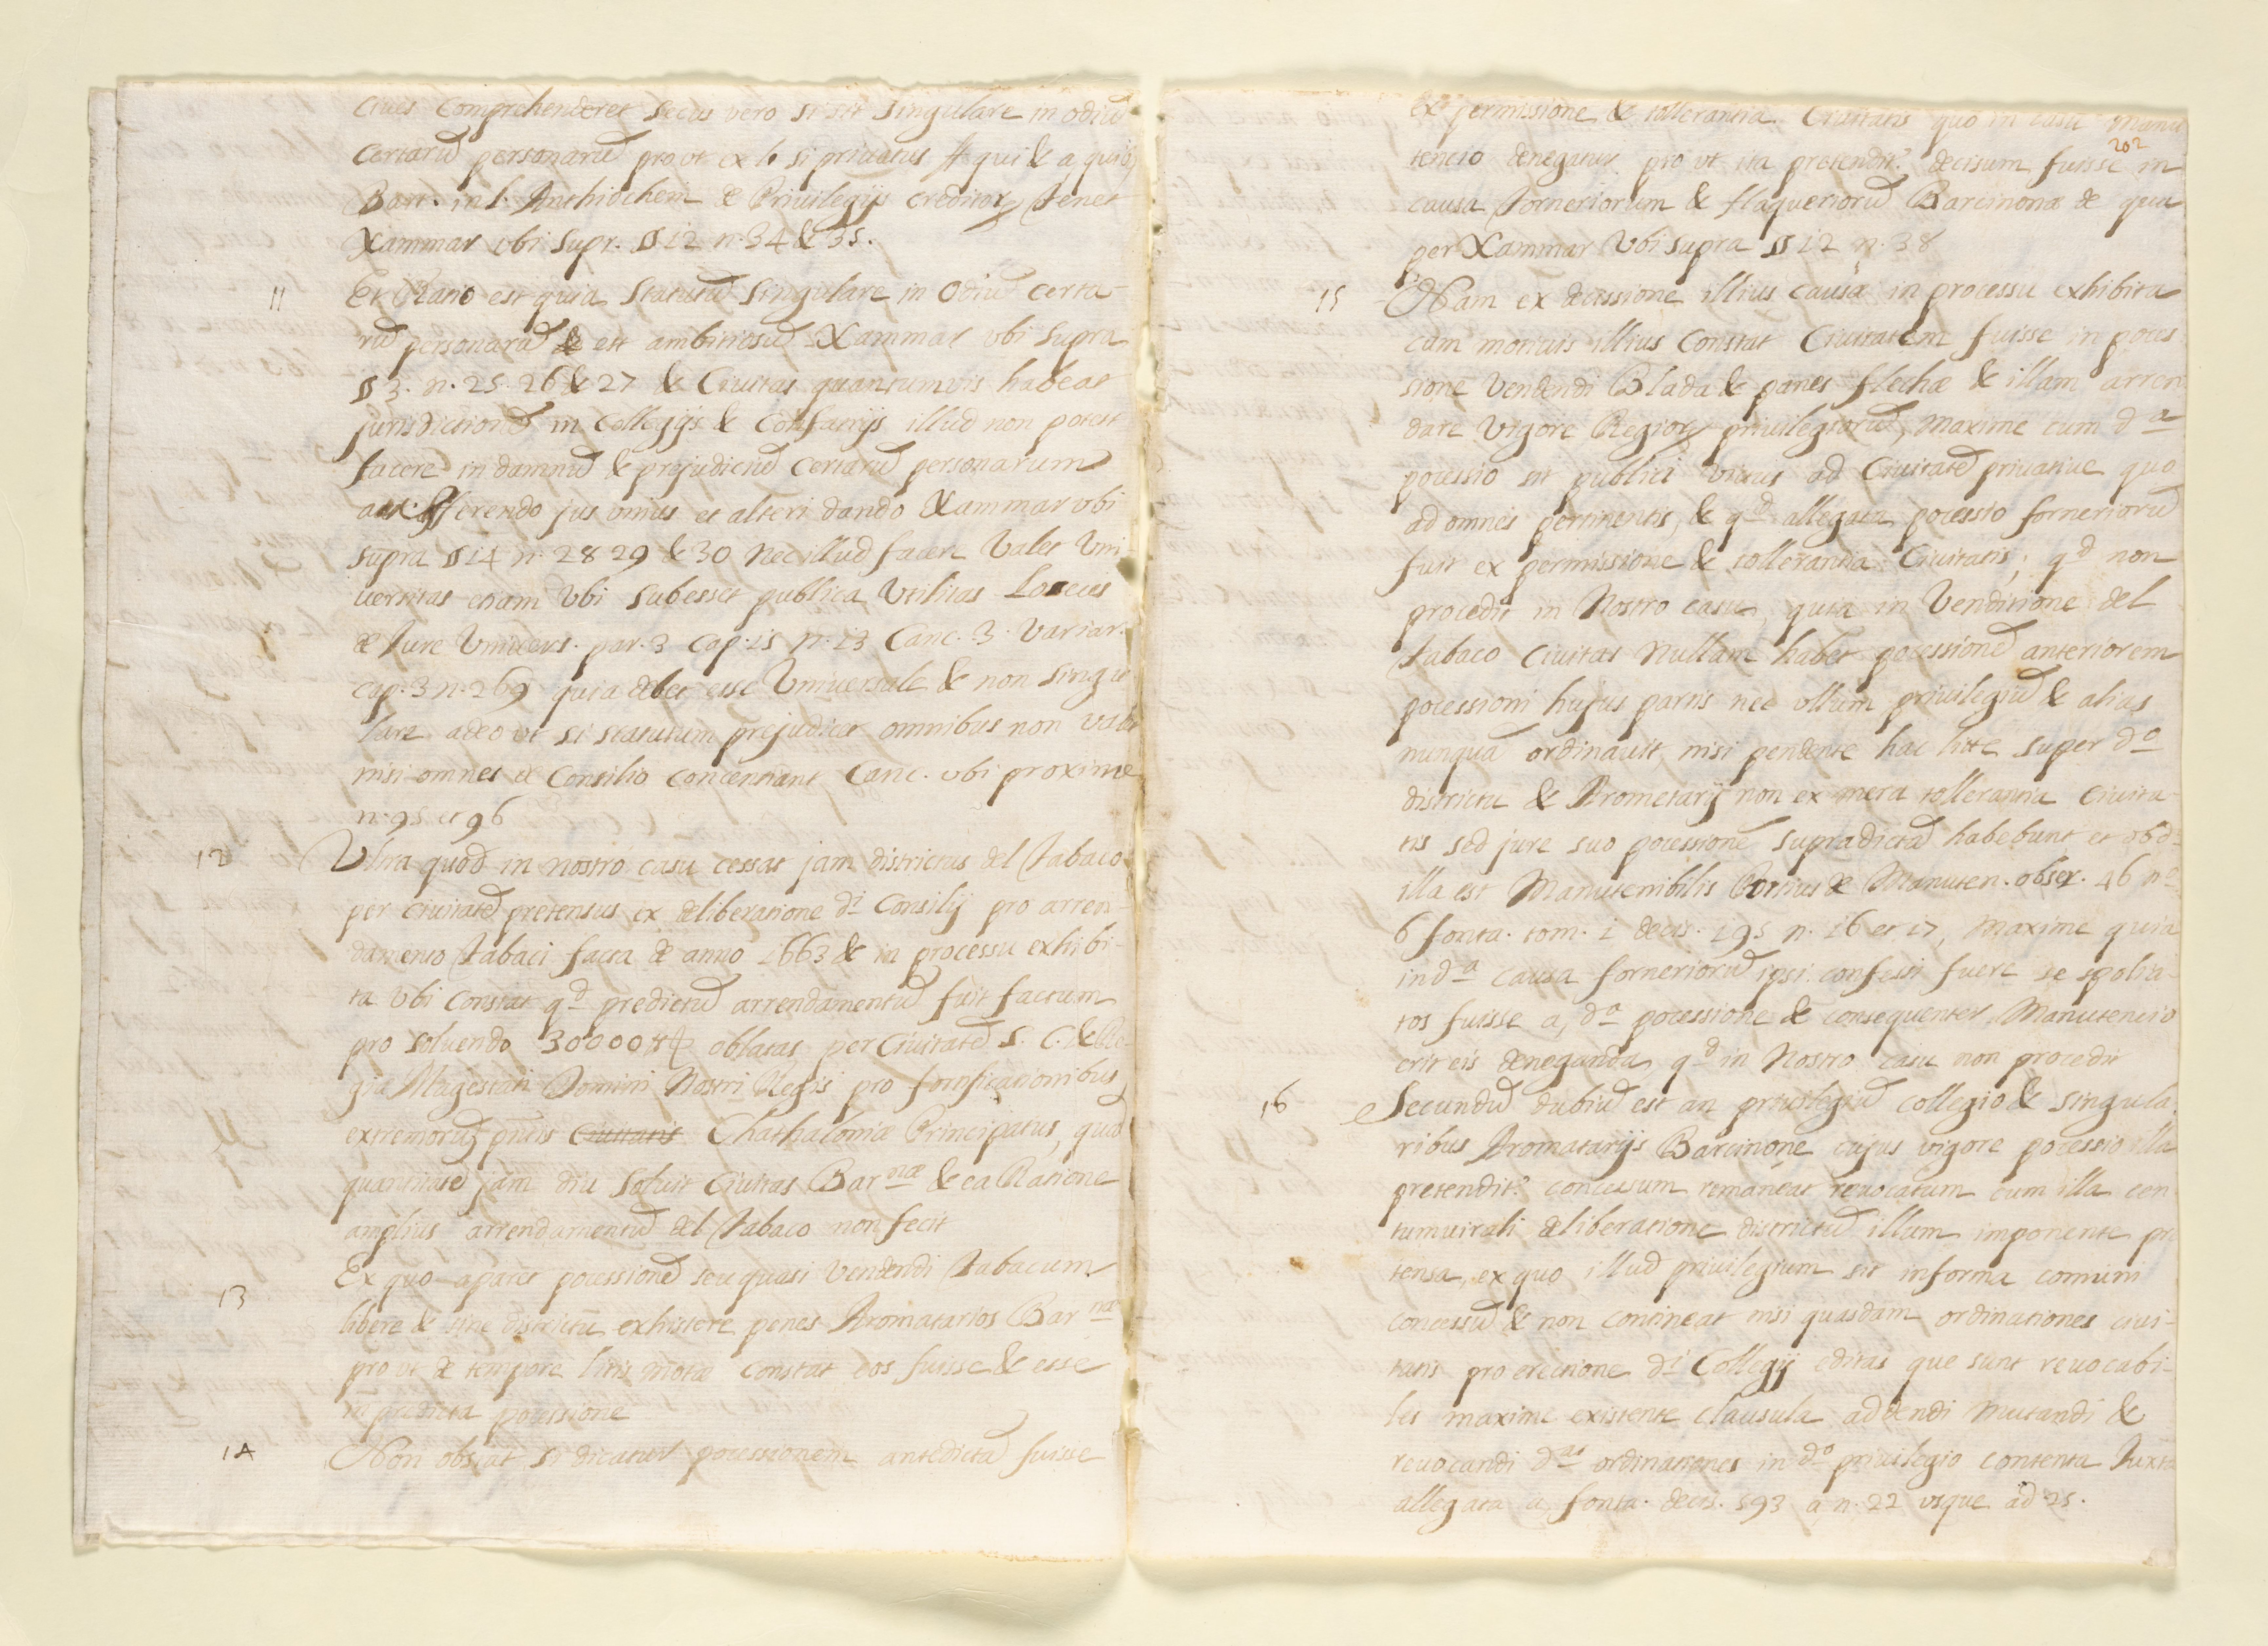 ciues comprehenderet secus vero si sit singulare in odiũ
certarũ personarũ prout ex l. si priuatus ff qui & a quib
Bart. in l. Anthiochein de Priuilegijs creditor tenet
Xammar vbi supr. § 12 n. 34 & 35.
11 Et Ratio est quia statutũ singulare in odiũ certa-
rũ personarũ est ambitiosũ Xammar vbi supra
§ 3. n. 25. 26 & 27 & Ciuitas quantumvis habeat
jurisdictionẽ in Collegijs & Confratrijs illud non potest
facere in damnũ & prejudiciũ certarũ personarum
aut afferendo jus vnius et alteri dando Xammar vbi
supra § 14 n. 28 29 & 30 Nec illud facere valet Vni-
uersitas etiam vbi subesset publica vtilitas Loseus
de Jure Vniuers. par. 3 cap. 15 n. 13 Canc. 3. Variar.
cap. 3 n. 269 quia debet esse Vniuersale & non singu
lare adeo vt si statutum prejudicet omnibus non valet
nisi omnes de Consilio concentiant Canc. vbi proxime
n. 95 et 96
12 Vltra quod in nostro casu cessat jam districtus del Tabaco
per ciuitatẽ pretensus ex deliberatione dⁱ Consilij pro arren-
damento Tabaci facta de anno 1663 & in processu exhibi-
ta vbi constat qᵈ predictũ arrendamentũ fuit factum
pro soluendo 30000 ₶ oblatas per Ciuitatẽ S. C. & Re
gia Magestati Domini Nostri Regis pro fortificationibus
extremorũ pntis Ciuitatis Chathaloniæ Principatus, quã
quantitatẽ jam diu soluit Ciuitas Barⁿᵃᵉ & ea Ratione
amplius arrendamentũ del Tabaco non fecit
13 Ex quo aparet pocessionẽ seu quasi vendendi Tabacum
libere & sine districtu exhistere penes Aromatarios Barⁿᵃᵉ
pro vt de tempore litis motæ constat eos fuisse & esse
in predicta pocessione
14 Non obstat si dicatur pocessionem antedictã fuisse
ex permissione & tollerantia Ciuitatis quo in casu manu
202
tencio denegatur pro vt ita pretendit? decisum fuisse in
causa forneriorum & flaqueriorũ Barcinonæ de qua
per Xammar Vbi supra § 12 n. 38
15 Nam ex decissione illius causæ in processu exhibita
cum motiuis illius constat Ciuitatem fuisse in poces
sione vendendi Blada & panes flechæ & illam arren
dare vigore Regior priuilegiorũ, maxime cum dᵃ
pocessio sit publici vitus ad Ciuitatẽ priuatiue quo
ad omnes pertinentis, & qᵈ allegata pocessio forneriorũ
fuit ex permissione & tollerantia Ciuitatis; qᵈ non
procedit in Nostro casu quia in Venditione del
Tabaco Ciuitas Nullam habet pocessionẽ anteriorem
pocessioni hujus partis nec vllum priuilegiũ & alias
nunquã ordinauit nisi pendente hac lite super dᵒ
districtu & Arometarij non ex mera tollerantia Ciuita-
tis sed jure suo pocessionẽ supradictã habebunt et ob dᵃ
illa est Manutenibilis Postius de Manuten. obser. 46 nᵒ
6 fonta. tom. 1 decis. 195 n. 16 et 17, Maxime quia
in dᵃ causa forneriorũ ipsi confessi fuere se spolia-
tos fuisse a, dᵃ pocessione & consequenter Manutencio
erit eis deneganda qᵈ in Nostro casu non procedit
16 Secundũ dubiũ est an priuilegiũ collegio & singula
ribus Aromatarijs Barcinone cujus vigore pocessio illa
pretendit? concessum romaneat reuocatum cum illa cen
tumuirali deliberatione districtũ illum imponente pre
tensa, ex quo illud priuilegium sit in forma comuni
concessũ & non contineat nisi quasdam ordinationes ciui-
tatis pro erectione dⁱ Collegij editas que sunt reuocabi-
les maxime existente clausula addendi mutandi &
reuocandi dᵃˢ ordinationes in dᵒ priuilegio contenta Juxta
allegata a, fonta. decis. 593 a, n. 22 vsque ad 25.